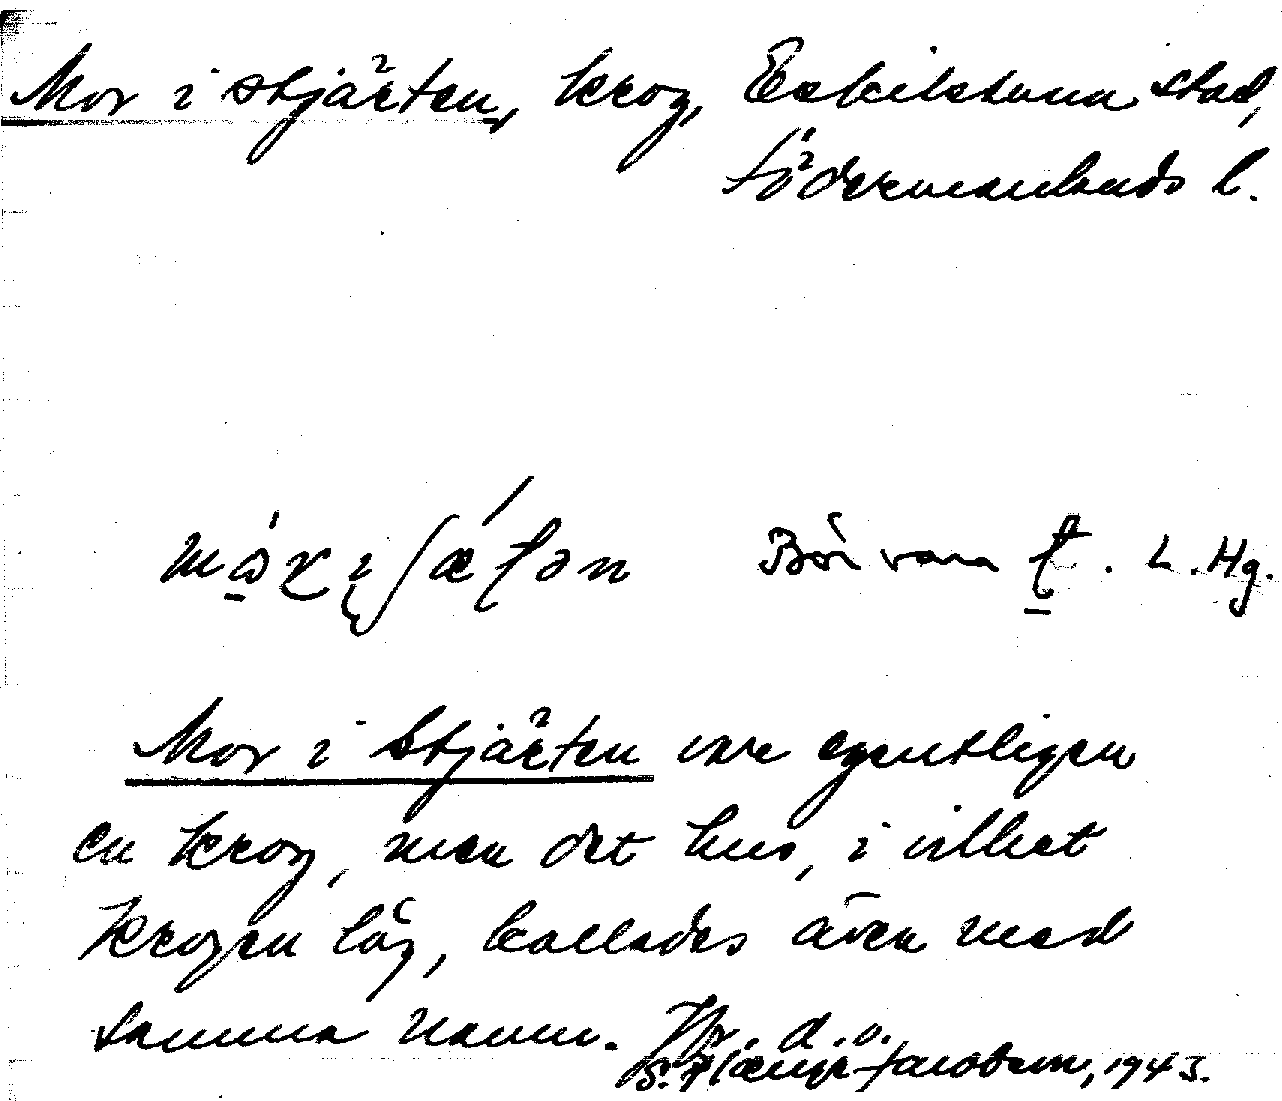 Mor i stjärten, krog, Eskilstuna stad,
Södermanlands l.
Bör vara t. L. Hg.
Mor i Stjärten var egentligen
en krog, men det hus, i vilket
krogen låg, kallades även med
samma namn. d. o.
Jacobson, 1943.